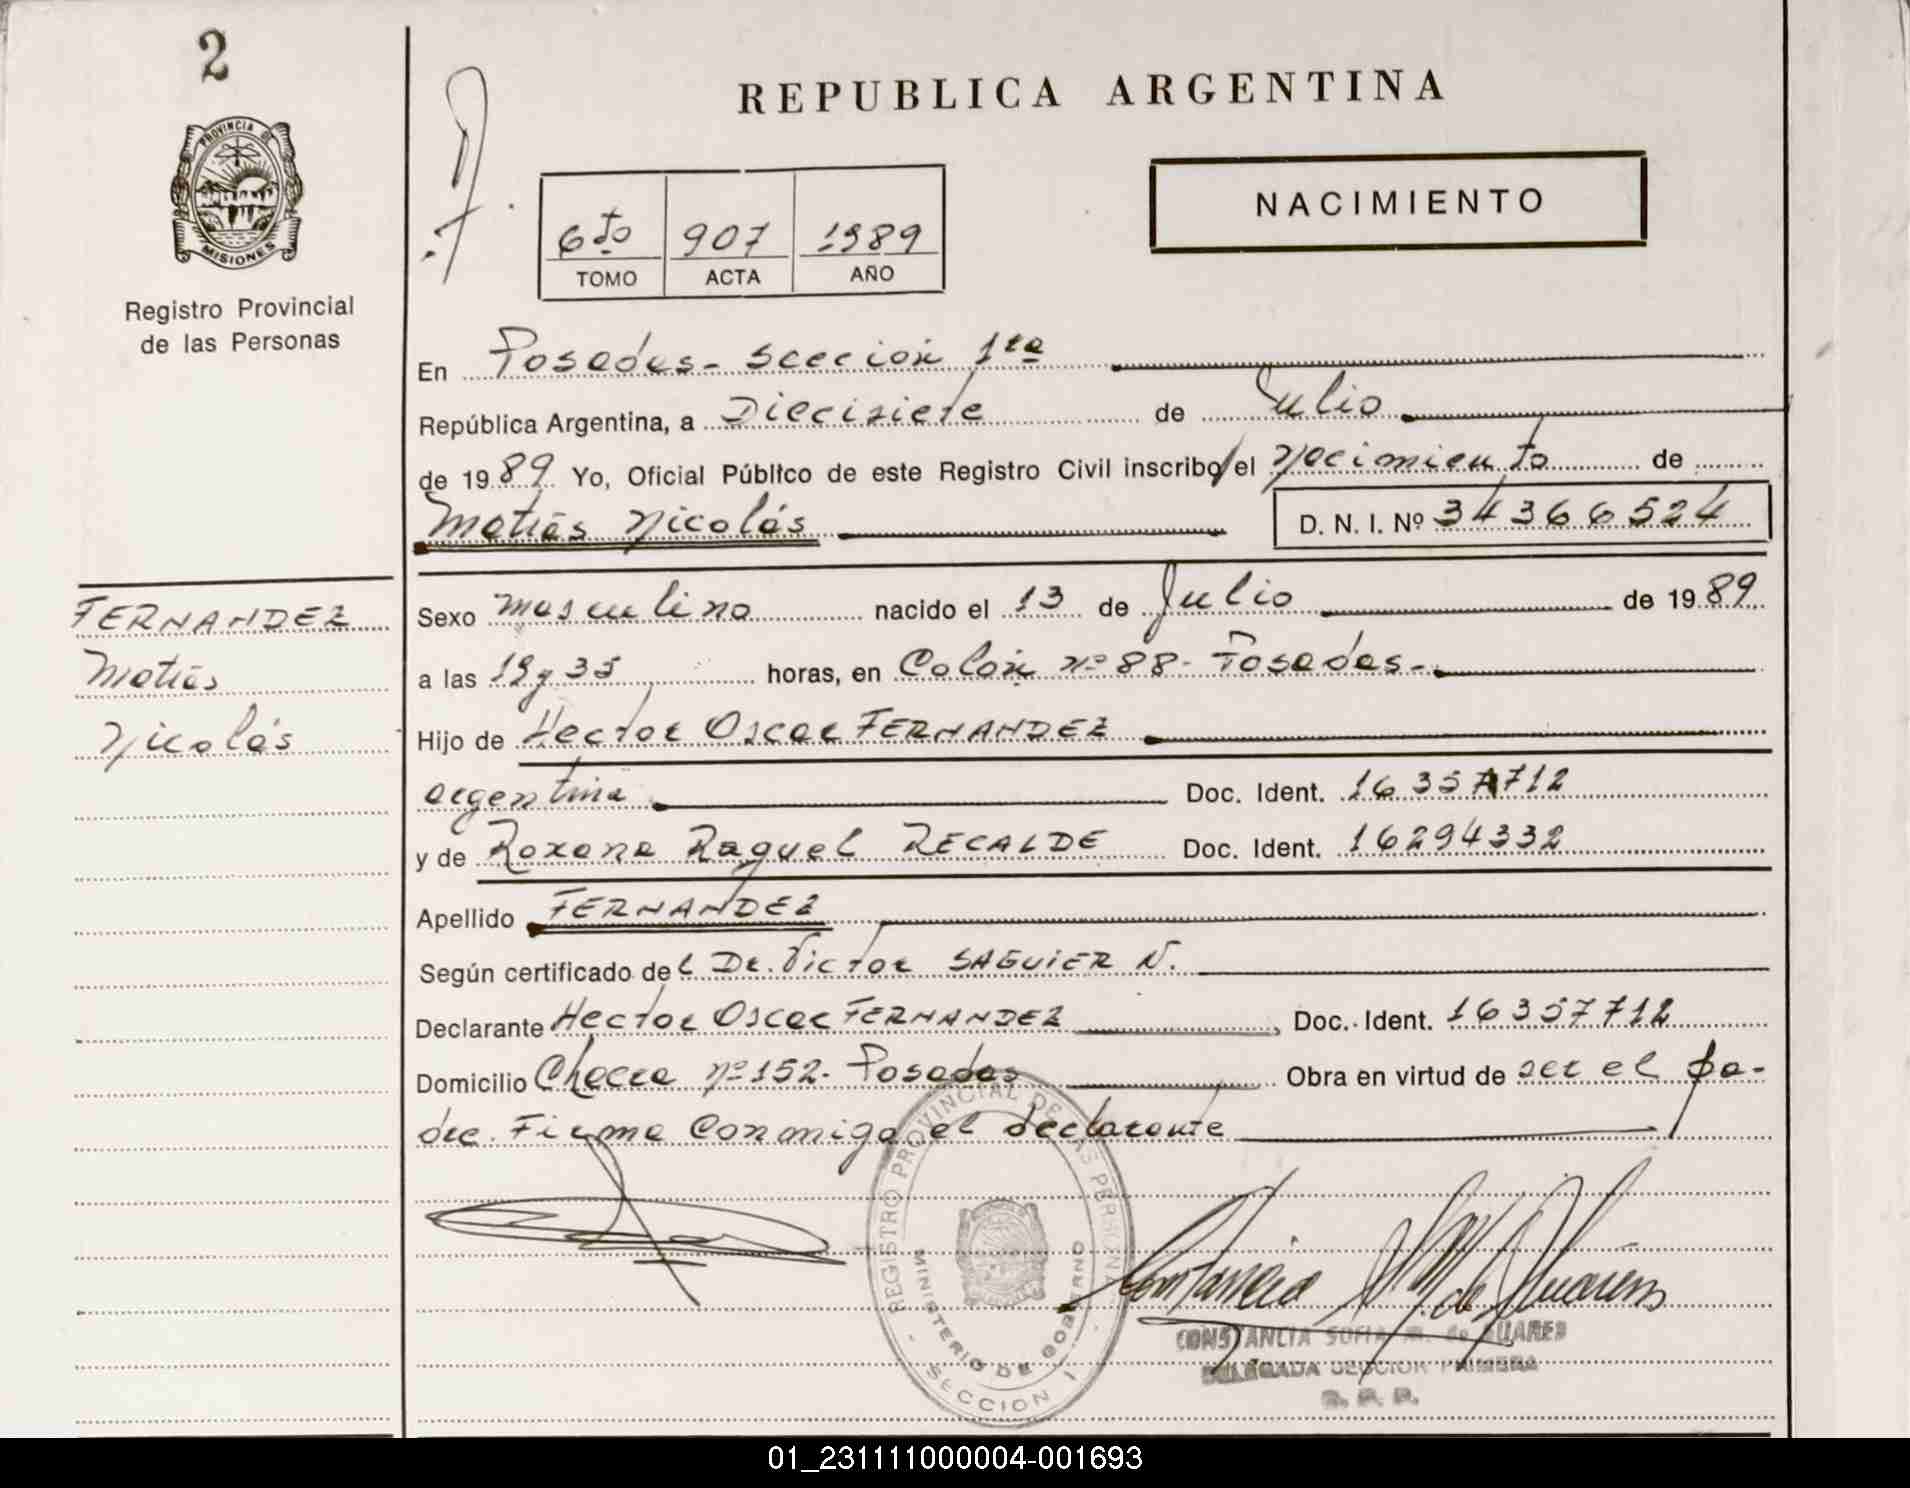 2
PROVINCIA DE
MISIONES
Registro Provincial
de las Personas
REPUBLICA ARGENTINA
NACIMIENTO
6to 907 1989
TOMO ACTA AÑO
En Posadas - Seccion 1ra
República Argentina, a Diecisiete de Julio
de 1989 Yo, Oficial Público de este Registro Civil inscribo el Nacimiento de
Matías Nicolás D. N. I. Nº 34366524
FERNANDEZ
Matías
Nicolás
Sexo masculino nacido el 13 de Julio de 1989
a las 19 y 35 horas, en Colón nº 88 - Posadas.-
Hijo de Hector Oscar FERNANDEZ
argentina Doc. Ident. 16357712
y de Roxana Raquel RECALDE Doc. Ident. 16294332
Apellido FERNANDEZ
Según certificado del Dr. Victor SAGUIER N.
Declarante Hector Oscar FERNANDEZ Doc. Ident. 16357712
Domicilio Chacra nº 152. Posadas Obra en virtud de ser el pa-
dre. Firma conmigo el declarante
REGISTRO PROVINCIAL DE LAS PERSONAS
MINISTERIO DE GOBERNO
- SECCION 1 -
CONSTANCIA SOFIA M. de SUARES
DELEGADA SECCION PRIMERA
R. P. P.
01_231111000004-001693